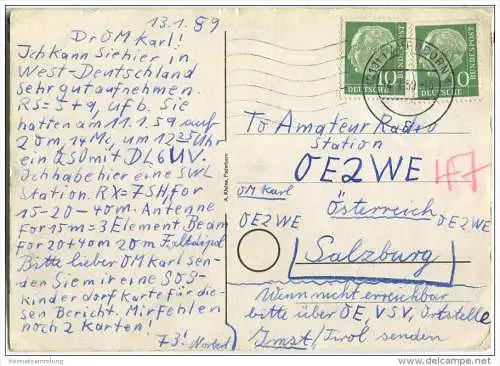 13.1.59
Dr OM Karl!
Ich kann Sie hier in
West-Deutschland
sehr gut aufnehmen.
RS=5+9, ufb. Sie
hatten am 11.1.59 auf
20m, 14Mc, um 1235 Uhr
ein QSO mit DL6UV.
Ich habe hier eine SWL
Station. RX=7SH/for
15-20-40m. Antenne
for 15m=3 Element Beam
for 20+40m 20m Falldipol
Bitte lieber OM Karl sen-
den Sie mir eine SOS-
kinderdorf Karte für die-
sen Bericht. Mir fehlen
noch 2 Karten!
73! Norbert
A. Kleine, Paderborn
10 DEUTSCHE BUNDESPOST
10 DEUTSCHE BUNDESPOST
To Amateur Radio
Station
OE2WE
47
OM Karl
Österreich
OE2WE
OE2WE
Salzburg
Wenn nicht erreichbar
bitte über OE, VSV, Ortstelle
Imst/Tirol senden
heimatsammlung
www.delcampe.net